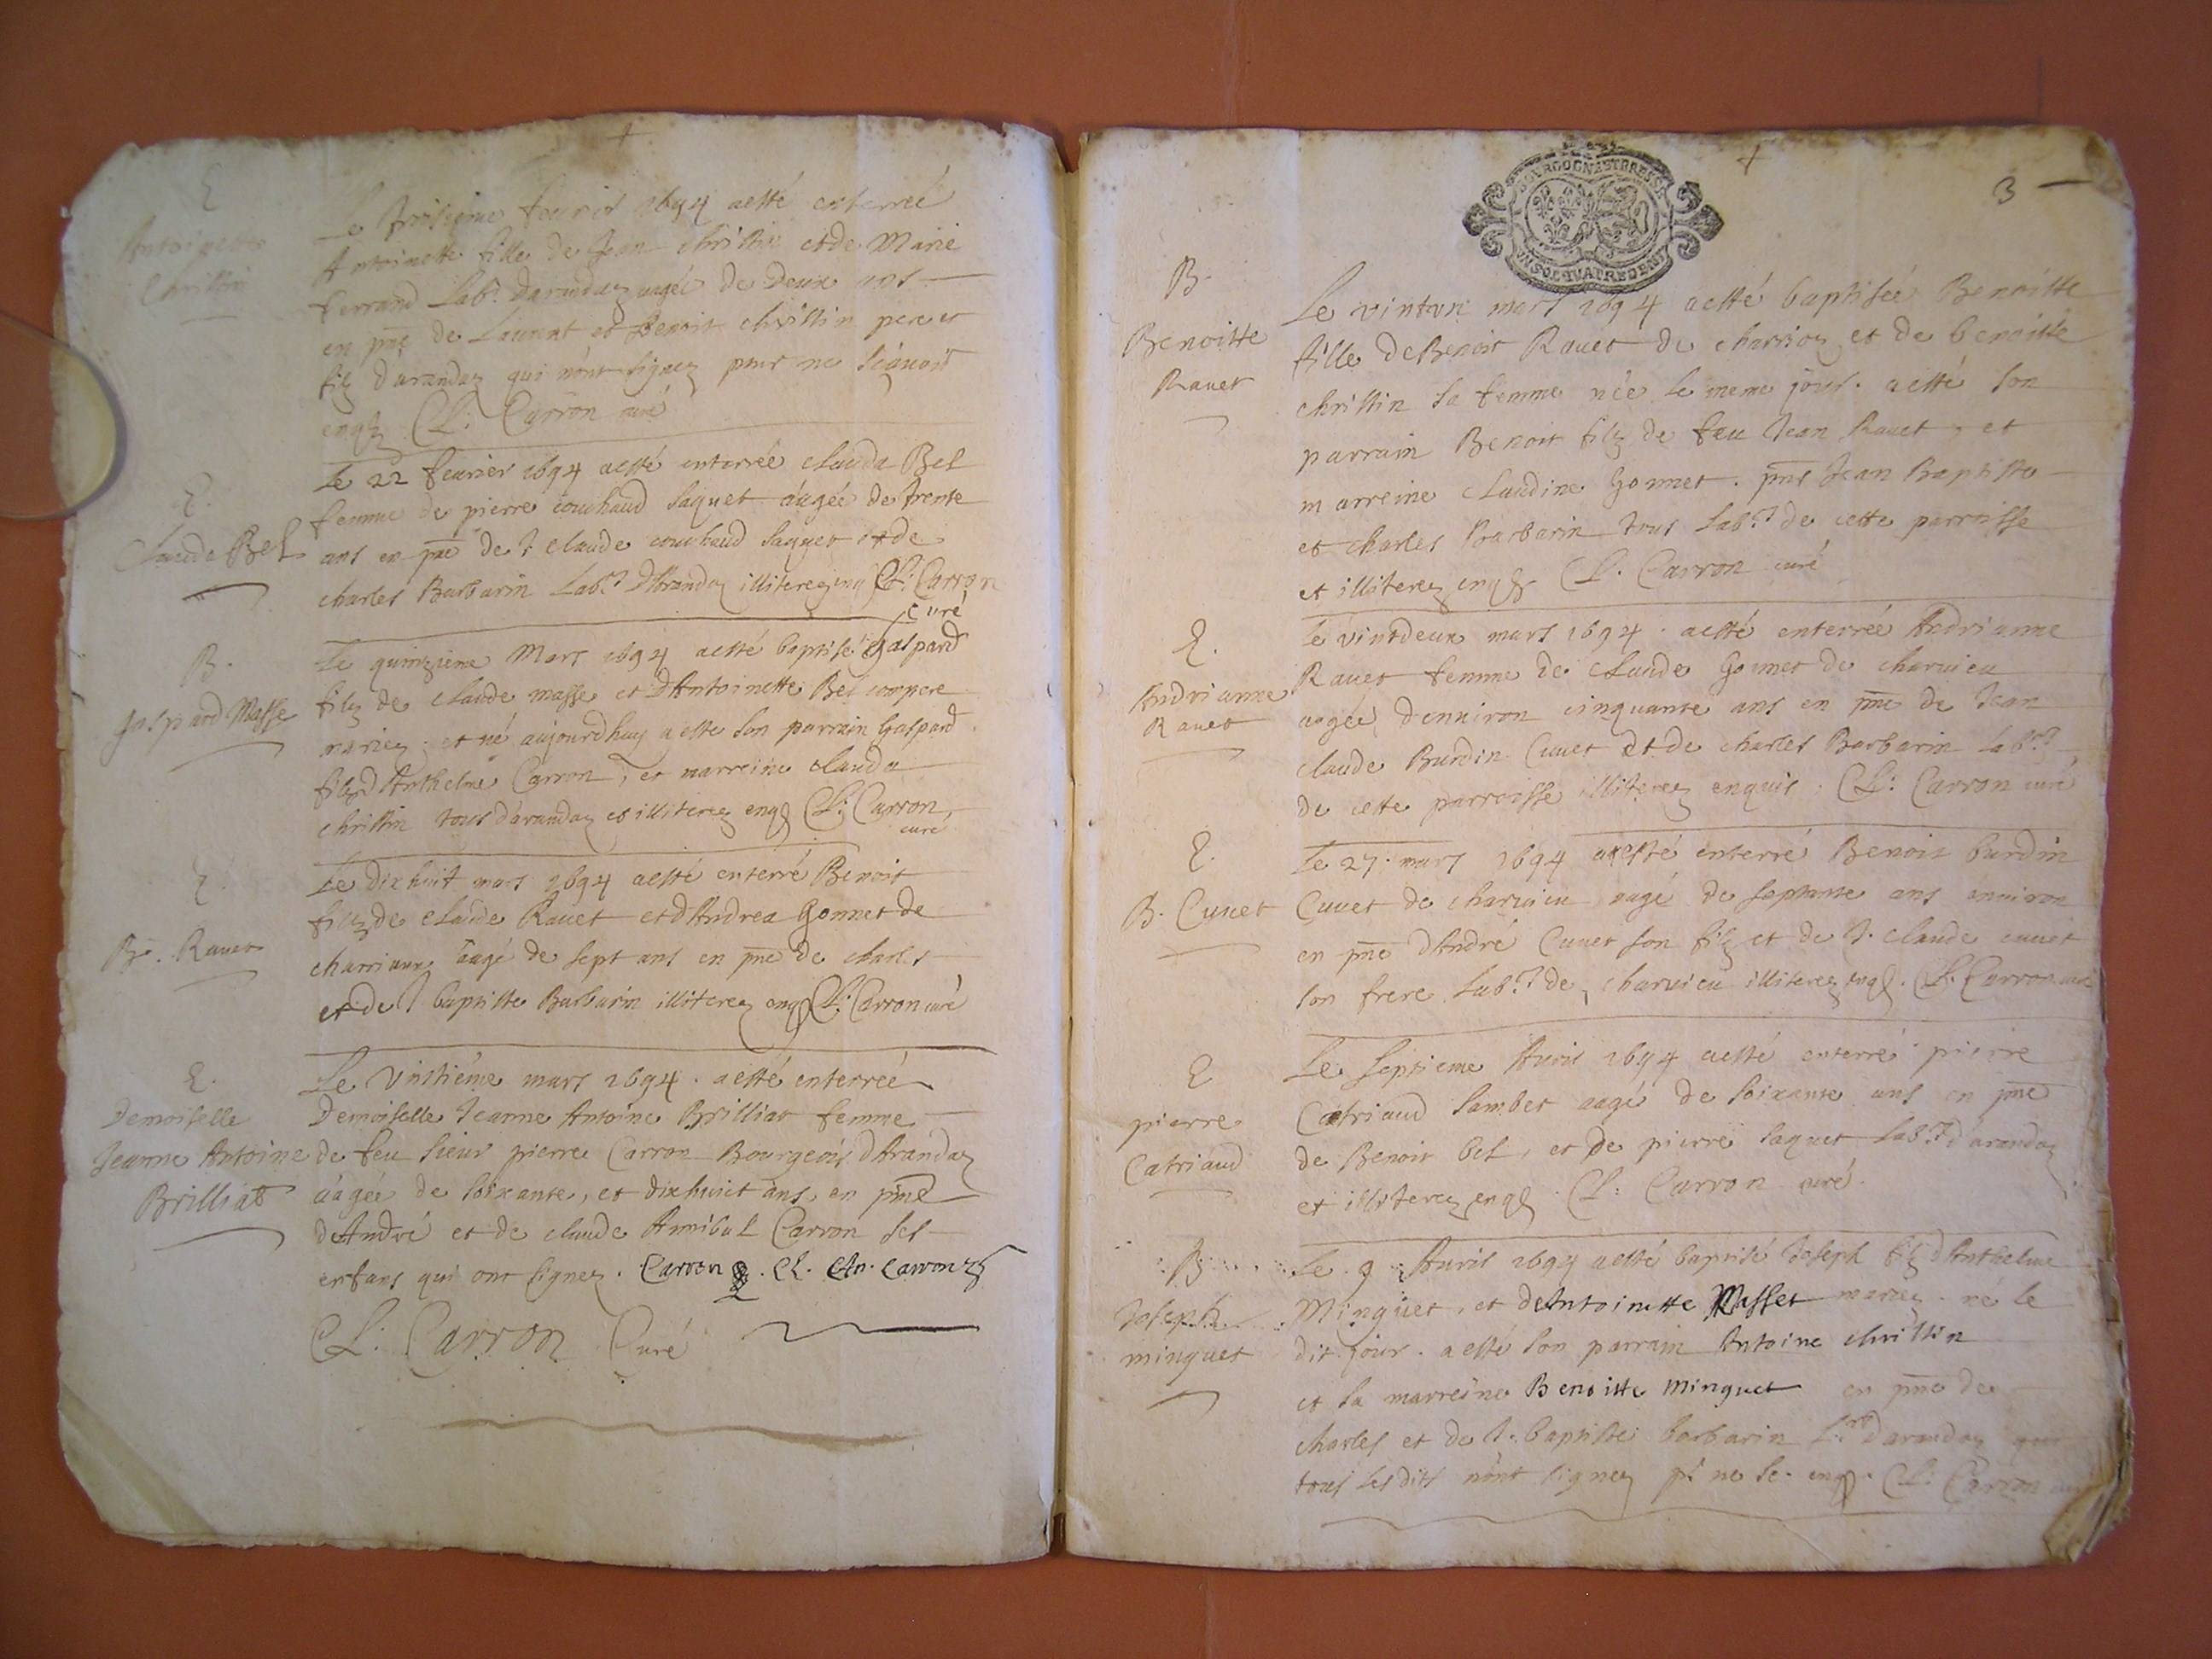 E
Antoinette
Christin
Le troisieme fevrier 1694 aesté enterreé
Antoinette fille de Jean christin et de Marie
ferrand Lab.r darandaz aageé de Deux ans
en pñce de Laurent et Benoit christin pere et
filz d'arandaz qui n'ont signez pour ne sçavoir
enqs CL: Carron curé
E.
Claude Bel
Le 22 fevrier 1694 aesté enterrée claude Bel
femme de pierre couchaud saquet aageé de trente
ans en pñce de J claude couchaud saquet et de
charles Barbarin Lab.rs d'Arandaz illiterez enqs CL: Carron
curé
B.
Gaspard Masse
Le quinzieme Mars 1694 aesté baptisé Gaspard
filz de claude masse et d'Antoinette Bel
mariez et né aujourdhuy a esté son parrain Gaspard
filz d'Anthelme Carron, et marreine claude
christin tous d'arandaz et illiterez enqs CL: Carron
curé
E.
B. Ravet
Le dixhuit mars 1694 aesté enterré Benoit
filz de claude Ravet et d'Andrea Gonnet de
charvieux aagé de sept ans en pñce de charles
et de J baptiste Barbarin illiterez enqs CL: Carron curé
E.
Demoiselle
Jeanne Antoine
Brilliat
Le Vintiéme mars 1694. aesté enterreé
Demoiselle Jeanne Antoine Brilliat femme
de feu sieur pierre Carron Bourgeois d'Arandaz
aageé de soixante, et dixhuict ans, en pñce
de André et de claude Annibal Carron ses
enfans qui ont signez. Carron. CL. An. Carron
CL: Carron Curé
3
BOURGOGNE ET BRESSE
UN SOL QUATRE DEN
B.
Benoitte
Ravet
Le vintun mars 1694 aesté baptisée Benoitte
fille de Benoit Ravet de charvioz et de benoitte
christin sa femme née le meme jour. aesté son
parrain Benoit filz de feu Jean Ravet, et
marreine claudine Gonnet. pñts Jean Baptiste
et charles Barbarin tous lab.rs de cette parroisse
et illiterez enqs CL. Carron curé
E.
Andrianne
Ravet
Le vintdeux mars 1694. aesté enterrée Andrianne
Ravet femme de claude Gonnet de charvieu
aagée d'environ cinquante ans en pñce de Jean
claude Burdin Cuvet et de charles Barbarin lab.rs
de cette parroisse illiterez enquis. CL: Carron curé
E.
B. Cuvet
Le 27. mars 1694 aesté enterré Benoit burdin
Cuvet de charvieu aagé de septante ans environ
en pñce d'André Cuvet son filz et de J. claude cuvet
son frere Lab.rs de charvieu illiterez enqs. CL. Carron curé
E
pierre
Catriaud
Le septieme Avril 1694 aesté enterré pierre
Catriaud sambet aagé de soixante ans en pñce
de Benoit bel, et de pierre saquet lab.rs d'arandaz
et illiterez enqs. CL: Carron curé.
B
Joseph
minguet
Le 9 Avril 1694 aesté baptisé Joseph filz d'Anthelme
Minguet, et de Antoinette Masset mariez. né le
dit jour. a esté son parrain Antoine christin
et sa marreine Benoitte Minguet en pñce de
charles et de J. baptiste barbarin L.rs d'arandaz
tous lesdits n'ont signez pr ne sc. enqs. CL: Carron